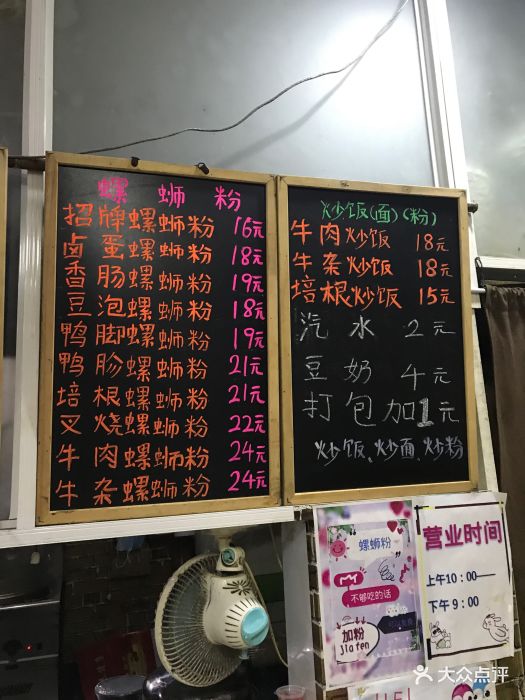 螺 蛳 粉
招牌螺蛳粉 16元
卤蛋螺蛳粉 18元
香肠螺蛳粉 19元
豆泡螺蛳粉 18元
鸭脚螺蛳粉 19元
鸭肠螺蛳粉 21元
培根螺蛳粉 21元
叉烧螺蛳粉 22元
牛肉螺蛳粉 24元
牛杂螺蛳粉 24元
炒饭(面)(粉)
牛肉炒饭 18元
牛杂炒饭 18元
培根炒饭 15元
汽水 2元
豆奶 4元
打包加1元
炒饭、炒面、炒粉
螺蛳粉
不够吃的话
加粉
jia fen
营业时间
上午10：00—
下午9：00
大众点评